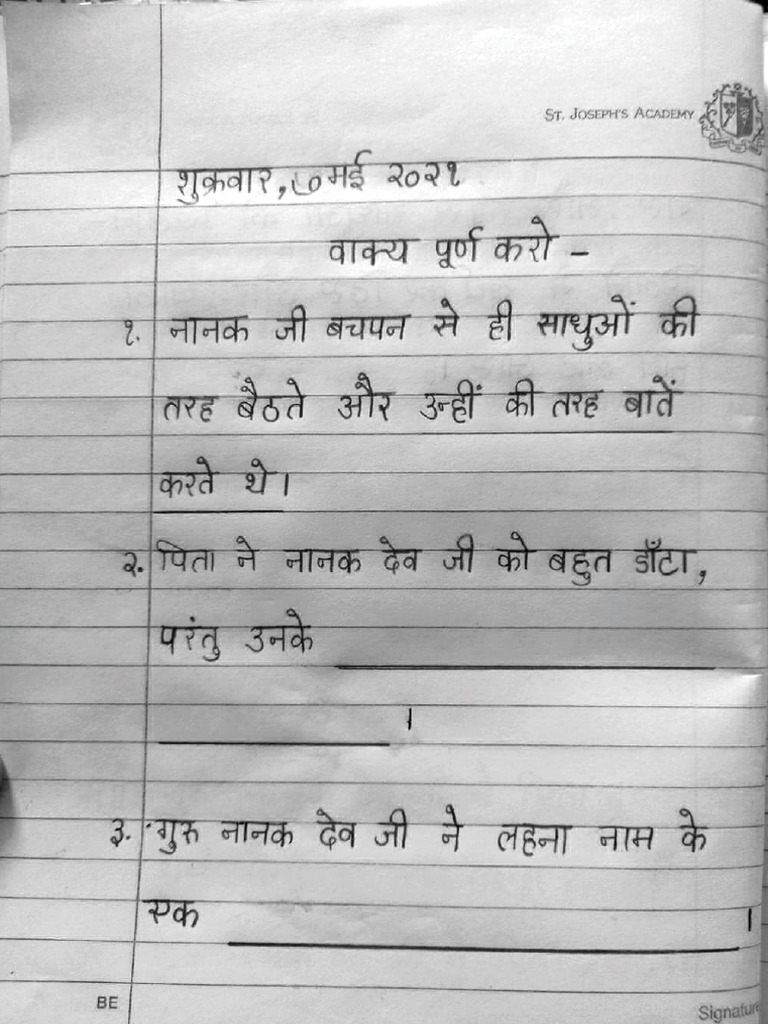 ST. JOSEPH'S ACADEMY
शुक्रवार, ७ मई २०२१
वाक्य पूर्ण करो –
१. नानक जी बचपन से ही साधुओं की
तरह बैठते और उन्हीं की तरह बातें
करते थे।
२. पिता ने नानक देव जी को बहुत डाँटा,
परंतु उनके
।
३. गुरु नानक देव जी ने लहना नाम के
एक ।
BE
Signature